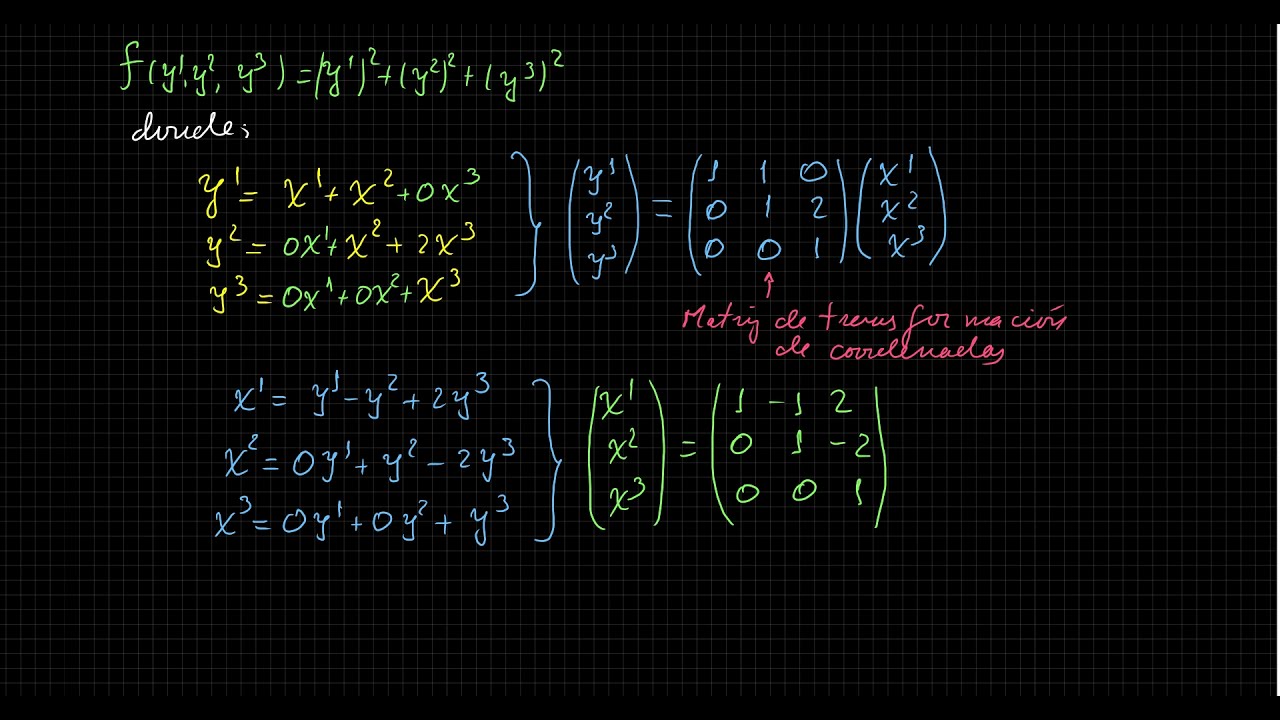 f(y¹, y², y³) = (y¹)² + (y²)² + (y³)²
donde;
y¹ = x¹ + x² + 0x³
y² = 0x¹ + x² + 2x³
y³ = 0x¹ + 0x² + x³
} (y¹ y² y³) = (1 1 0
0 1 2
0 0 1) (x¹ x² x³)
↑
Matriz de transformación
de coordenadas
x¹ = y¹ - y² + 2y³
x² = 0y¹ + y² - 2y³
x³ = 0y¹ + 0y² + y³
} (x¹ x² x³) = (1 -1 2
0 1 -2
0 0 1)